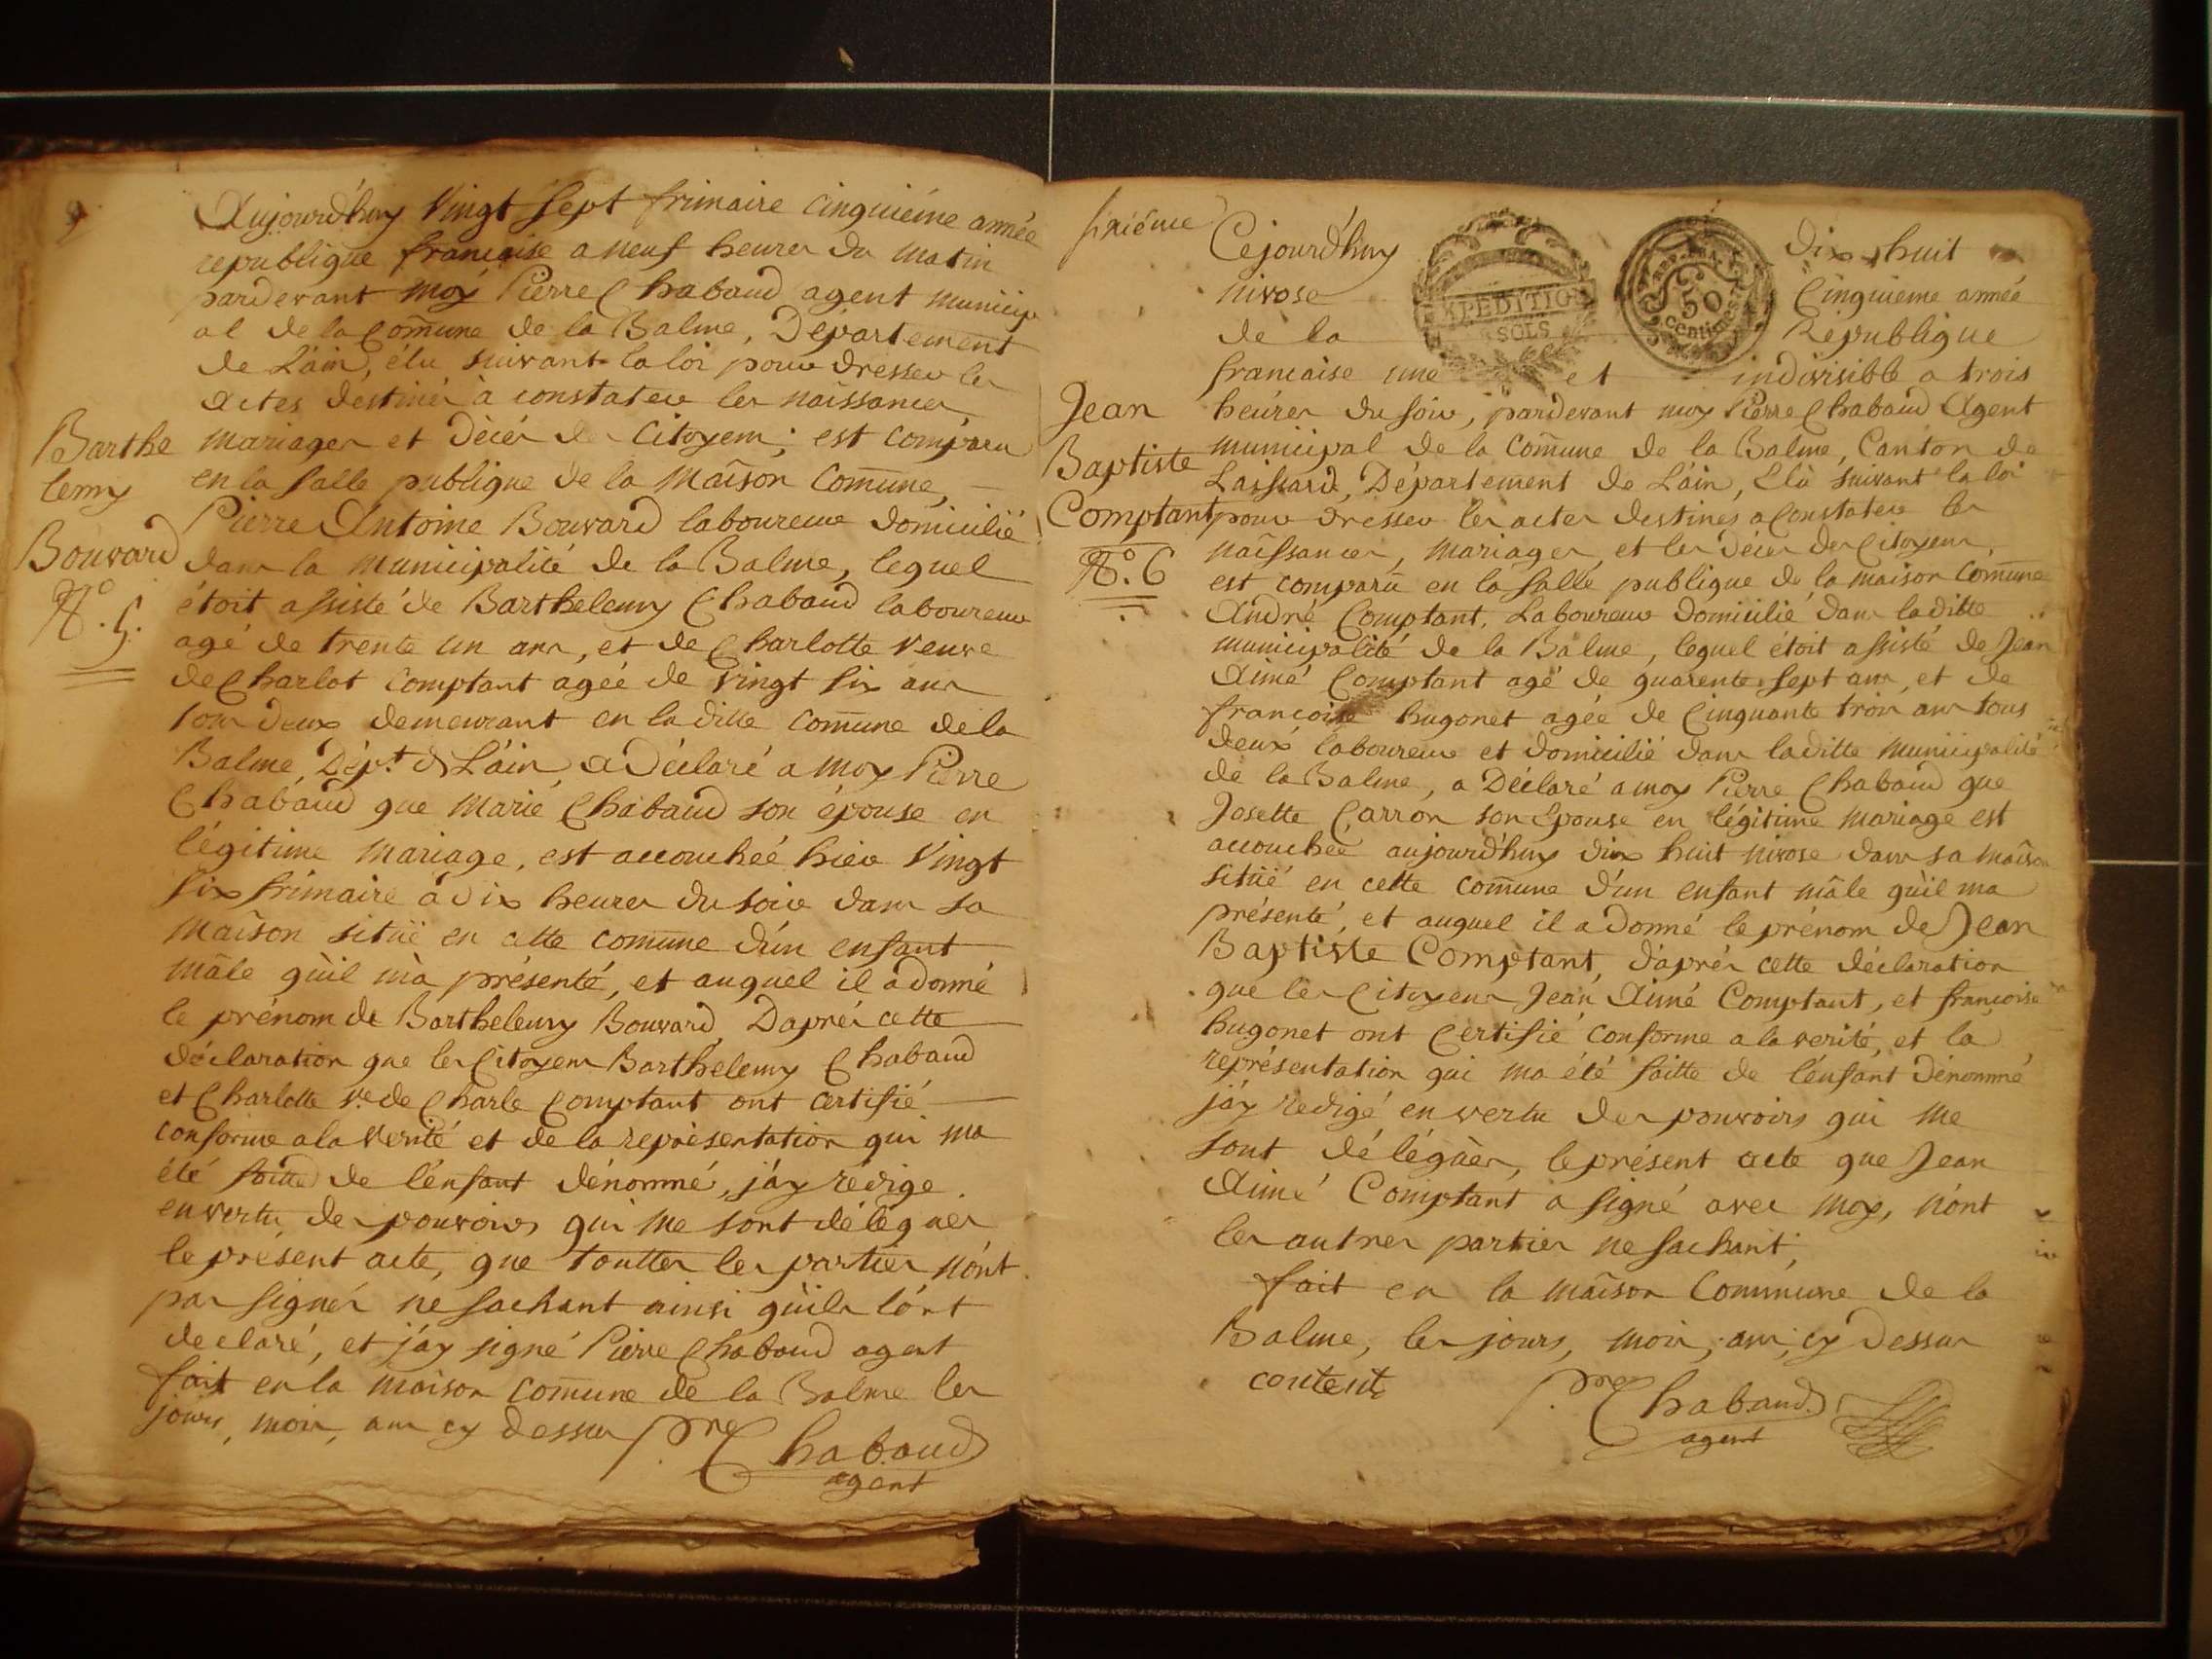 Aujourd'huy Vingt Sept frimaire Cinquiéme année
republique francaise a neuf heures du matin
pardevant moy Pierre Chabaud agent municip
al de la Com̄une de la Balme, Département
de L'ain, élu suivant la loi pour dresser les
actes destinés à constater les naissances
Barthe
lemy
Bouvard
N.º 5.
mariages et décés des Citoyens; est comparu
en la Salle publique de la Maîson Com̄une,
Pierre Antoine Bouvard laboureur domicilié
dans la municipalité de la Balme, lequel
étoit assisté de Barthelemy Chabaud laboureur
agé de trente un ans, et de Charlotte veuve
de Charlot Comptant agéé de vingt six ans
tous deux demeurant en laditte Com̄une de la
Balme, Dép.t de L'ain, a Déclaré a moy Pierre
Chabaud que Marie Chabaud son épouse en
légitime mariage, est accouchéé hier Vingt
six frimaire à dix heures du soir dans sa
Maîson sitüé en cette com̄une d'un enfant
mâle qu'il m'a présenté, et auquel il a donné
le prénom de Barthelemy Bouvard, D'aprés cette
déclaration que les Citoyens Barthélemy Chabaud
et Charlotte v.e de Charle Comptant ont certifié
conforme a la verité et de la représentation qui ma
été faitte de l'enfant dénommé, j'ay rédigé
en vertu des pouvoirs qui me sont délégués
le présent acte, que touttes les parties n'ont
pas signés ne sachant ainsi qu'ils l'ont
declaré, et j'ay signé Pierre Chabaud agent
fait en la maison com̄une de la Balme les
jours, mois, ans cy dessus P.re Chabaud
agent
sixiéme
Cejourd'huy dix huit
nivose Cinquieme année
de la Republique
francaise une et indivisible a trois
EXPEDITION
SOLS
REP. FRA.
50
centimes
Jean
Baptiste
Comptant
N.º 6
heures du soir, pardevant moy Pierre Chabaud Agent
municipal de la Com̄une de la Balme, Canton de
Laissard, Département de L'ain, Elù suivant la loi
pour dresser les actes destinés a Constater les
naîssances, mariages, et les décés des Citoyens,
est comparu en la Salle publique de la maison Com̄une
André Comptant, Laboureur domicilié dans laditte
municipalité de la Balme, lequel étoit assisté de Jean
Aimé Comptant agé de quarente sept ans, et de
francoise hugonet agée de Cinquante trois ans tous
deux laboureur et domicilié dans laditte municipalité
de la Balme, a Déclaré a moy Pierre Chabaud que
Josette Carron son Epouse en légitime mariage est
accouchéé aujourd'huy dix huit nivose dans sa maîson
sitüé en cette com̄une d'un enfant mâle qu'il ma
présenté, et auquel il a donné le prénom de Jean
Baptiste Comptant, d'aprés cette déclaration
que les Citoyens Jean Aimé Comptant, et francoise
hugonet ont Certifié conforme a la verité, et la
représentation qui ma été faitte de l'enfant dénommé
j'ay redigé en vertu des pouvoirs qui me
sont délégués, le présent acte que Jean
Aimé Comptant a signé avec moy, n'ont
les autres parties ne sachant;
fait en la maîson Commune de la
Balme, les jours, mois, ans, cy dessus
P.re Chabaud
agent